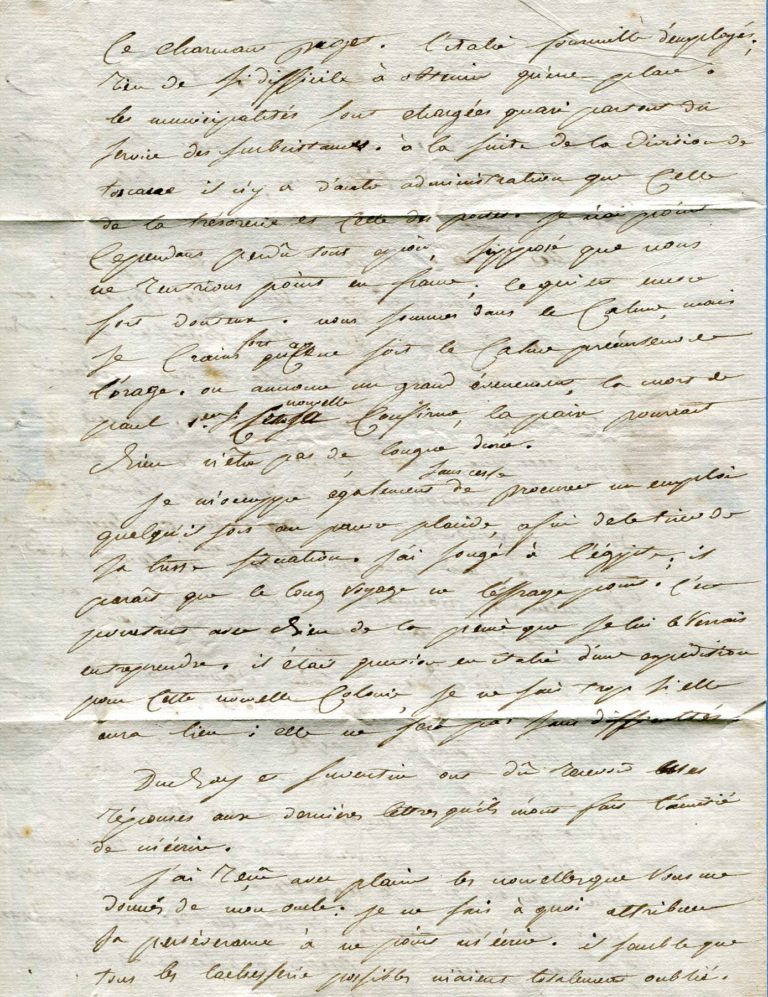 Ce charmant projet. l'italie fourmille d'employés;
rien de si difficile à obtenir qu'une place.
les municipalités sont chargées quasi partout du
service des subsistances. à la suite de la division de
toscane il n'y a d'autre administration que celle
de la trésorerie et celle des postes. je n'ai point
cependant perdu tout espoir, supposé que nous
ne rentrions point en france, ce qui est encore
fort douteux. nous sommes dans le calme, mais
je crains fort que ce ne soit le calme précurseur de
l'orage. on annonce un grand évenement, la mort de
paul 1er. si cette nouvelle se confirme, la paix pourrait
bien n'être pas de longue durée.
je m'occupe également sans cesse de procurer un emploi
quelqu'il soit au pauvre plaide, afin de le tirer de
sa triste situation. j'ai songé à l'égypte; il
parait que le long voyage ne l'effraye point; c'est
pourtant avec bien de la peine que je le lui verrais
entreprendre. il était question en italie d'une expédition
pour cette nouvelle colonie, je ne sais trop si elle
aura lieu; elle ne sera pas sans difficultés.
et ont dû recevoir mes
réponses aux dernières lettres qu'ils m'ont fait l'amitié
de m'écrire.
j'ai reçu avec plaisir les nouvelles que vous me
donnés de mon oncle. je ne sais à quoi attribuer
sa persévérance à ne point m'écrire. il semble que
tous les possibles m'aient totalement oublié.